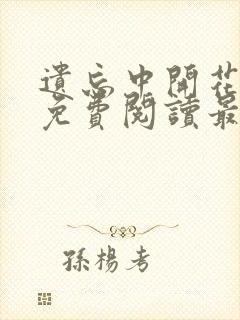 遺忘中開花
免費閱讀最
孫楊考